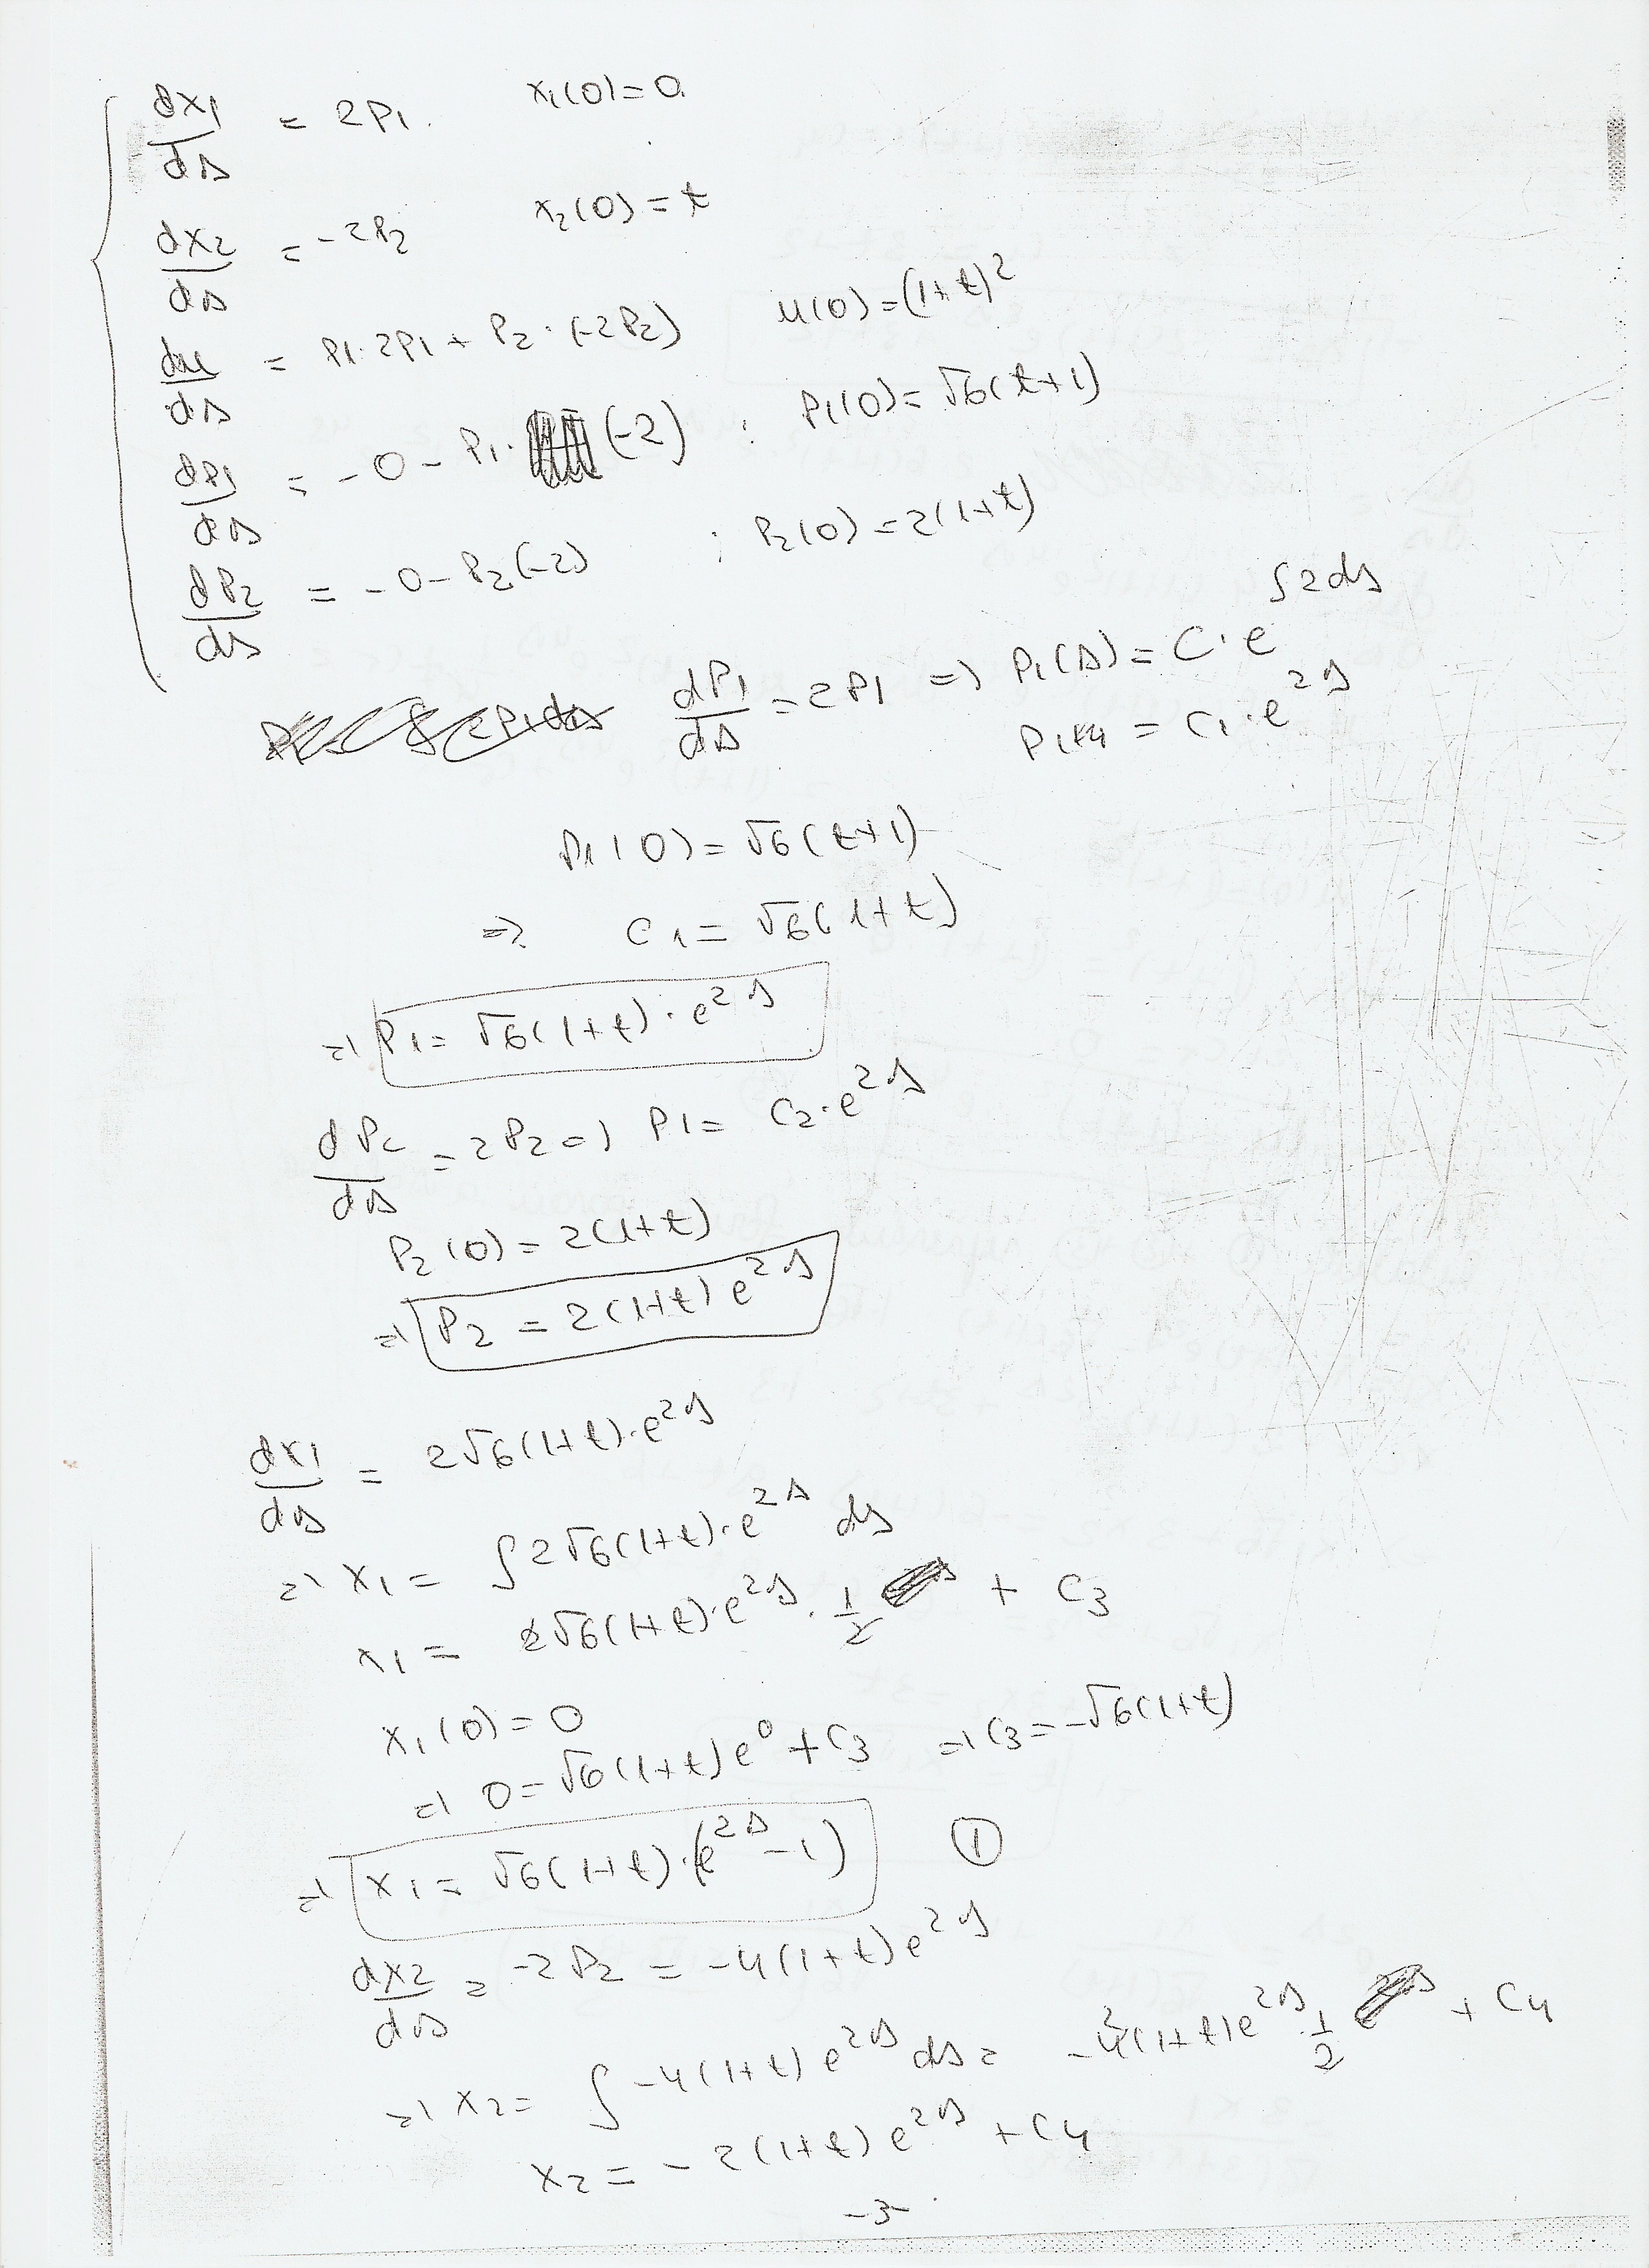 dx₁/ds = 2P₁. x₁(0)=0.
dx₂/ds = -2P₂ x₂(0)=t
du/ds = P₁·2P₁ + P₂·(-2P₂) u(0)=(1+t)²
dP₁/ds = -0-P₁·(-2) ; P₁(0)=√6(t+1)
dP₂/ds = -0-P₂(-2) ; P₂(0)=2(1+t)
dP₁/ds = 2P₁ => P₁(s)=C·e^∫2ds
= C₁·e^2s
P₁(0)=√6(t+1)
=> C₁=√6(1+t)
=> P₁=√6(1+t)·e^2s
dP₂/ds = 2P₂ => P1= C₂·e^2s
P₂(0)=2(1+t)
=> P₂ = 2(1+t)e^2s
dx₁/ds = 2√6(1+t)·e^2s
=> x₁= ∫2√6(1+t)·e^2s ds
x₁= 2√6(1+t)·e^2s·1/2 + C₃
x₁(0)=0
=> 0=√6(1+t)e⁰+C₃ => C₃=-√6(1+t)
=> x₁=√6(1+t)·(e^2s-1) ①
dx₂/ds = -2P₂ = -4(1+t)e^2s
=> x₂= ∫-4(1+t)e^2s ds = -4(1+t)e^2s·1/2 + C₄
x₂= -2(1+t)e^2s + C₄
-3-